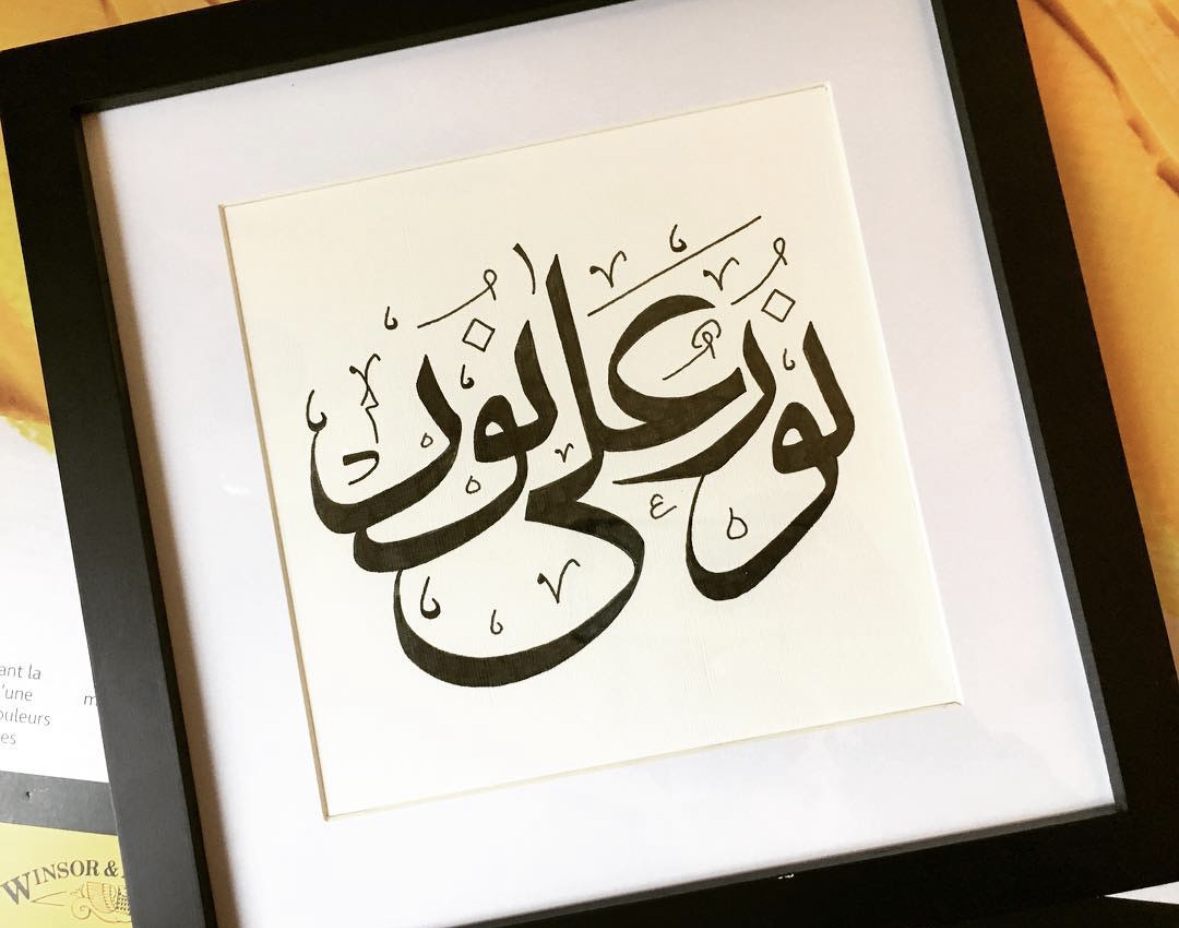 نُورٌ عَلَى نُورٍ
ant la
'une
ouleurs
es
WINSOR &